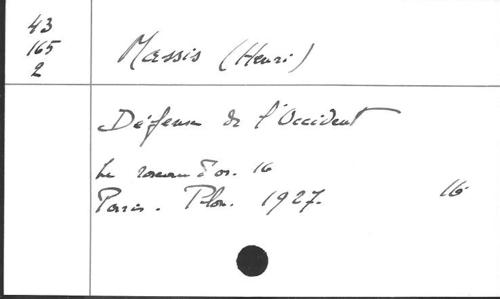 43
165
2
Massis (Henri)
Défense de l'Occident
Le roseau d'or. 16
Paris. Plon. 1927.
16